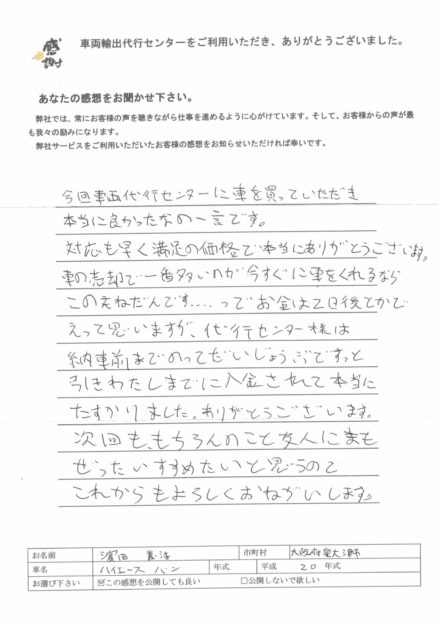 感謝
車両輸出代行センターをご利用いただき、ありがとうございました。
あなたの感想をお聞かせ下さい。
弊社では、常にお客様の声を聴きながら仕事を進めるように心がけています。そして、お客様からの声が最
も我々の励みになります。
弊社サービスをご利用いただいたお客様の感想をお知らせいただければ幸いです。
今回車両代行センターに車を買っていただき
本当に良かったなの一言です。
対応も早く満足の価格で本当にありがとうございます。
車の売却で一番多いのが今すぐに車をくれるなら
このねだんです....ってお金は2日後とかで
えって思いますが、代行センター様は
納車前までのってだいじょうぶですっと
引きわたしまでに入金されて本当に
たすかりました。ありがとうございます。
次回も、もちろんのこと友人にまも
ぜったいすすめたいと思うので
これからもよろしくおねがいします。
お名前 濱田 市町村 大阪府泉大津市
車名 ハイエース バン 年式 平成 20 年式
お選び下さい ☑この感想を公開しても良い □公開しないで欲しい